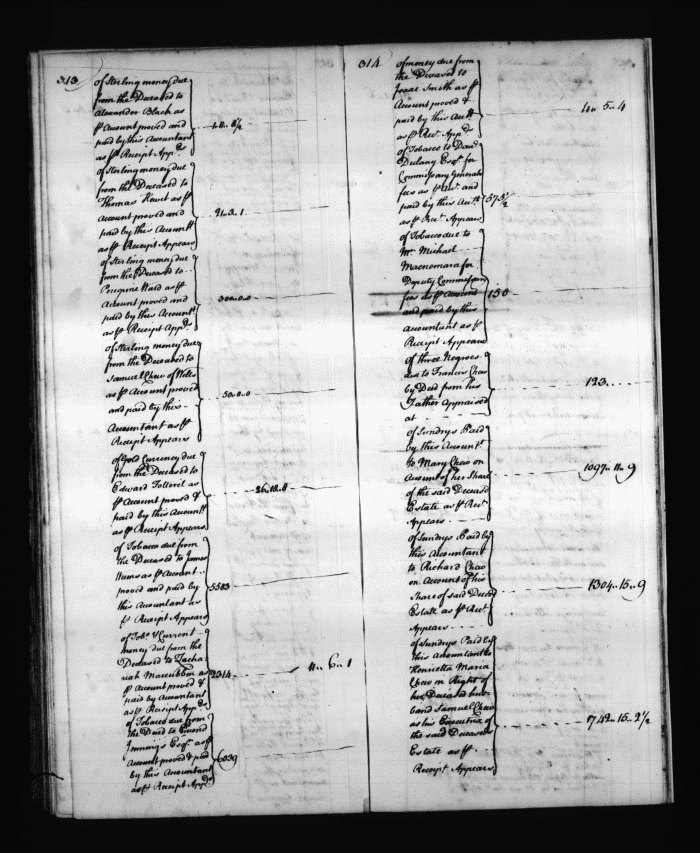 313
of Sterling money due
from the Deceased to
Alexander Black as ꝑ
ꝑ Account proved and
paid by this Accountant
as ꝑ Receipt Appds
1.11.8½
of Sterling money due
from the Deceased to
Thomas as ꝑ
Account proved and
paid by this Accountt
as ꝑ Receipt Appears
21.3.1
of Sterling money due
from the Deceased to
Peregrine Ward as ꝑ
Account proved and
paid by this Accountt
as ꝑ Receipt Appds
300.0.0
of Sterling money due
from the Deceased to
Samuel Chew of Wells
as ꝑ Account proved
and paid by this
Accountant as ꝑ
Receipt Appears
50.0.0
of Gold Currency due
from the Deceased to
Edward as
ꝑ Account proved &
paid by this Accountt
as ꝑ Receipt Appears
26.18.0
of Tobacco due from
the Deceased to James
as ꝑ Account
proved and paid by
this Accountant as
ꝑ Receipt Appears
5583
of Tobo. & Current
money due from the
Deceased to Zacha
riah Maccubbin as
ꝑ Account proved &
paid by Accountant
as ꝑ Receipt Appds
2314
11.6.1
of Tobacco due from
the Deced to Emond
Jennings Esqr. as ꝑ
Account proved & paid
by this Accountant
as ꝑ Receipt Appds
6039
314
of money due from
the Deceased to
Isaac Smith as ꝑ
Account proved &
paid by this Acctt
as ꝑ Rect. Appds
4.5.4
of Tobacco to Danl
Dulany Esqr. for
Commissary Generals
fees as ꝑ Acct. and
paid by this Acctt
as ꝑ Rect. Appears
575½
of Tobacco due to
Mr. Michael
Macnemara for
Deputy Commissary
fees as ꝑ Account
and paid by this
accountant as ꝑ
Receipt Appears
130
of three Negroes
due to Francis Chew
by Deed from his
Father Appraised
at
123
of Sundrys Paid
by this Accountt
to Mary Chew on
Account of her Share
of the said Deceased
Estate as ꝑ Rect
Appears
1097.11.9
of Sundrys Paid by
this Accountant
to Richard Chew
on Account of his
Share of said Deced
Estate as ꝑ Rect
Appears
1304.15.9
of Sundrys Paid by
this Accountant to
Henrietta Maria
Chew in Right of
her Deceased hus
band Samuel Chew
as his Executrix of
the said Deceased
Estate as ꝑ
Receipt Appears
742.15.2½